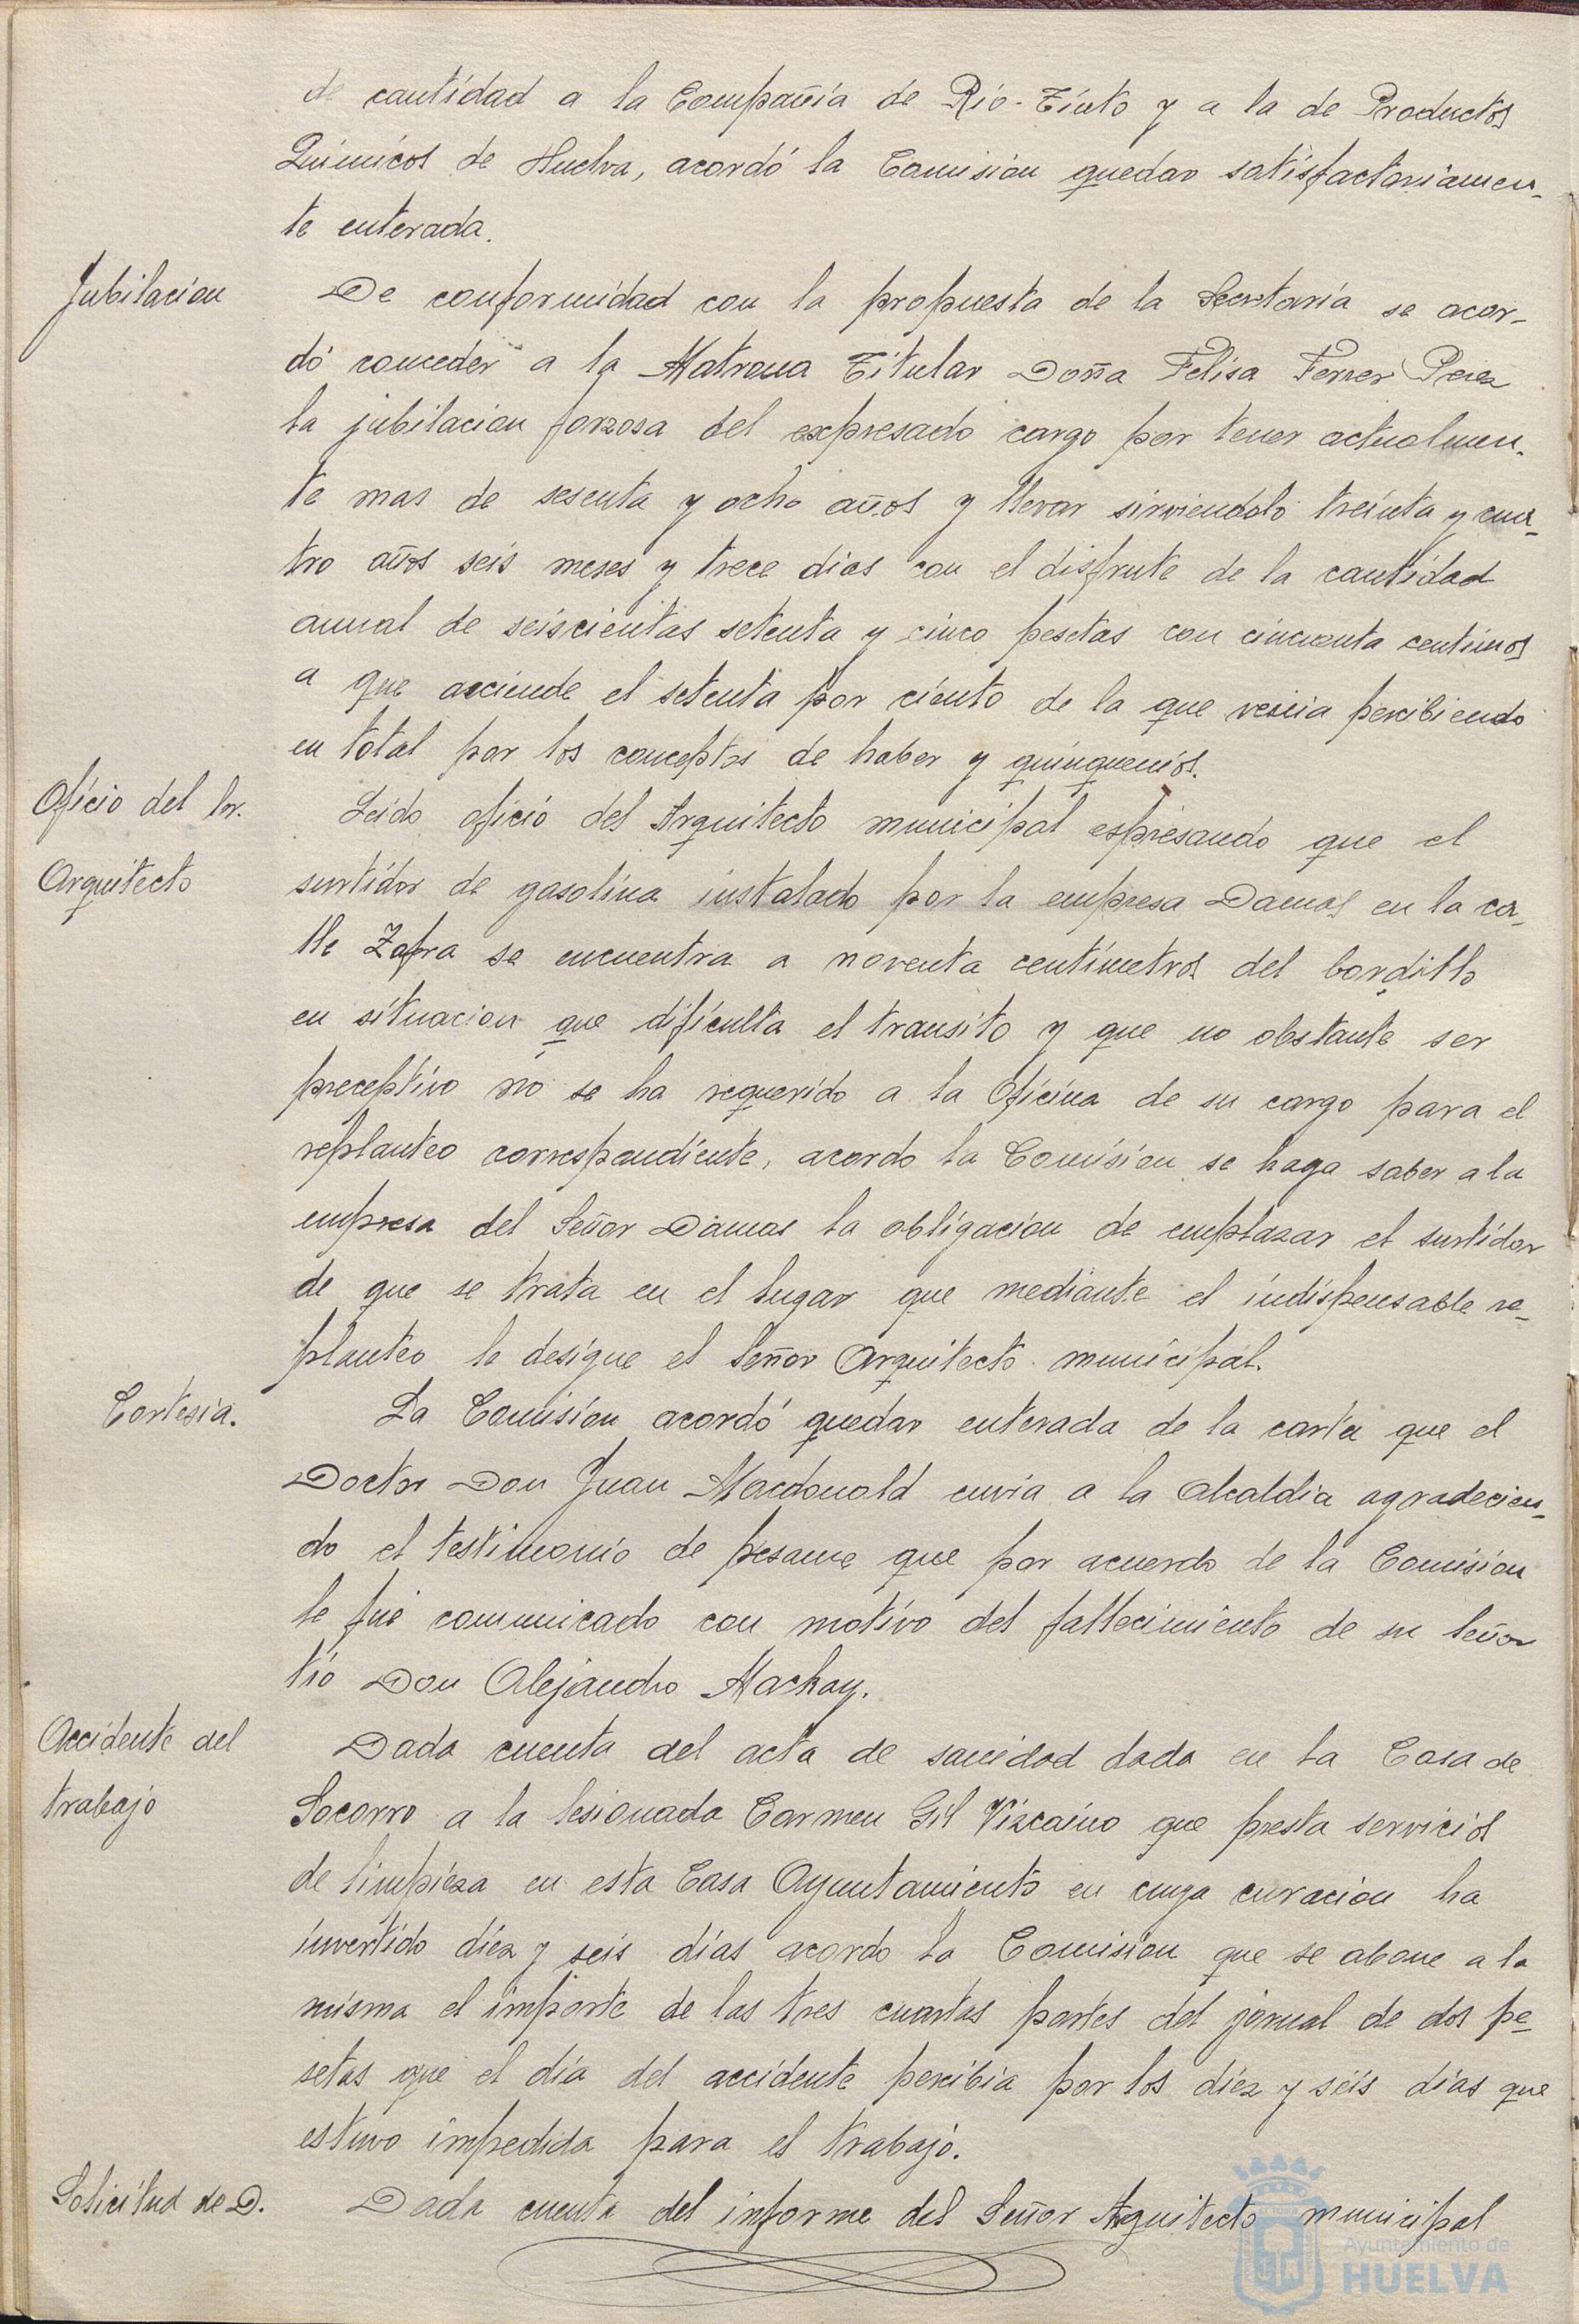 de cantidad a la Compañía de Rio-Tinto y a la de Productos
Químicos de Huelva, acordó la Comision quedar satisfactoriamen-
te enterada.
Jubilacion
De conformidad con la propuesta de la Secretaría se acor-
dó conceder a la Matrona Titular Doña Felisa Ferrer Perez
la jubilacion forzosa del expresado cargo por tener actualmen-
te mas de sesenta y ocho años y llevar sirviendolo treinta y cua-
tro años seis meses y trece dias con el disfrute de la cantidad
anual de seiscientas setenta y cinco pesetas con cincuenta centimos
a que asciende el setenta por ciento de la que venia percibiendo
en total por los conceptos de haber y quinquenios.
Oficio del Sr.
Arquitecto
Leido oficio del Arquitecto municipal espresando que el
surtidor de gasolina instalado por la empresa Damas en la ca-
lle Zafra se encuentra a noventa centímetros del bordillo
en situacion que dificulta el transito y que no obstante ser
preceptivo no se ha requerido a la Oficina de su cargo para el
replanteo correspondiente, acordo la Comision se haga saber a la
empresa del Señor Damas la obligacion de emplazar el surtidor
de que se trata en el lugar que mediante el indispensable re-
planteo le desigue el Señor Arquitecto municipal.
Cortesia.
La Comision acordó quedar enterada de la carta que el
Doctor Don Juan Macdonald envia a la Alcaldia agradecien-
do el testimonio de pesame que por acuerdo de la Comision
le fue comunicado con motivo del fallecimiento de su Señor
tio Don Alejandro Mackay.
Accidente del
trabajo
Dada cuenta del acta de sanidad dada en la Casa de
Socorro a la lesionada Carmen Gil Vizcaino que presta servicios
de limpieza en esta Casa Ayuntamiento en cuya curacion ha
invertido diez y seis días acordo la Comision que se abone a la
misma el importe de las tres cuartas partes del jornal de dos pe-
setas que el día del accidente percibia por los diez y seis dias que
estuvo impedida para el trabajo.
Solicitud de D.
Dada cuenta del informe del Señor Arquitecto municipal
Ayuntamiento de
HUELVA